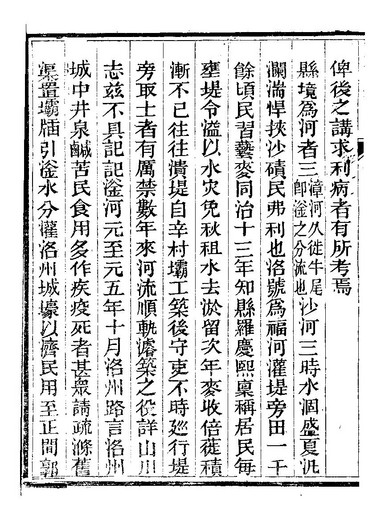 俾後之講求利病者有所考焉
縣境爲河者三漳河久徙牛尾卽滏之分流也沙河三時水涸盛夏汎
瀾湍悍挾沙磧民弗利也洺號爲福河灌堤旁田一千
餘頃民習藝麥同治十三年知縣羅慶熙稟稱居民每
壅堤令溢以水灾免秋祖水去淤留次年麥收倍蓰積
漸不已往往潰堤自辛村壩工築後守吏不時廵行堤
旁取土者有厲禁數年來河流順軌濬築之役詳山川
志兹不具記記滏河元至元五年十月洺州路言洺州
城中井泉鹹苦民食用多作疾疫死者甚衆請疏滌舊
渠置壩牐引滏水分灌洺州城壕以濟民用至正間郭